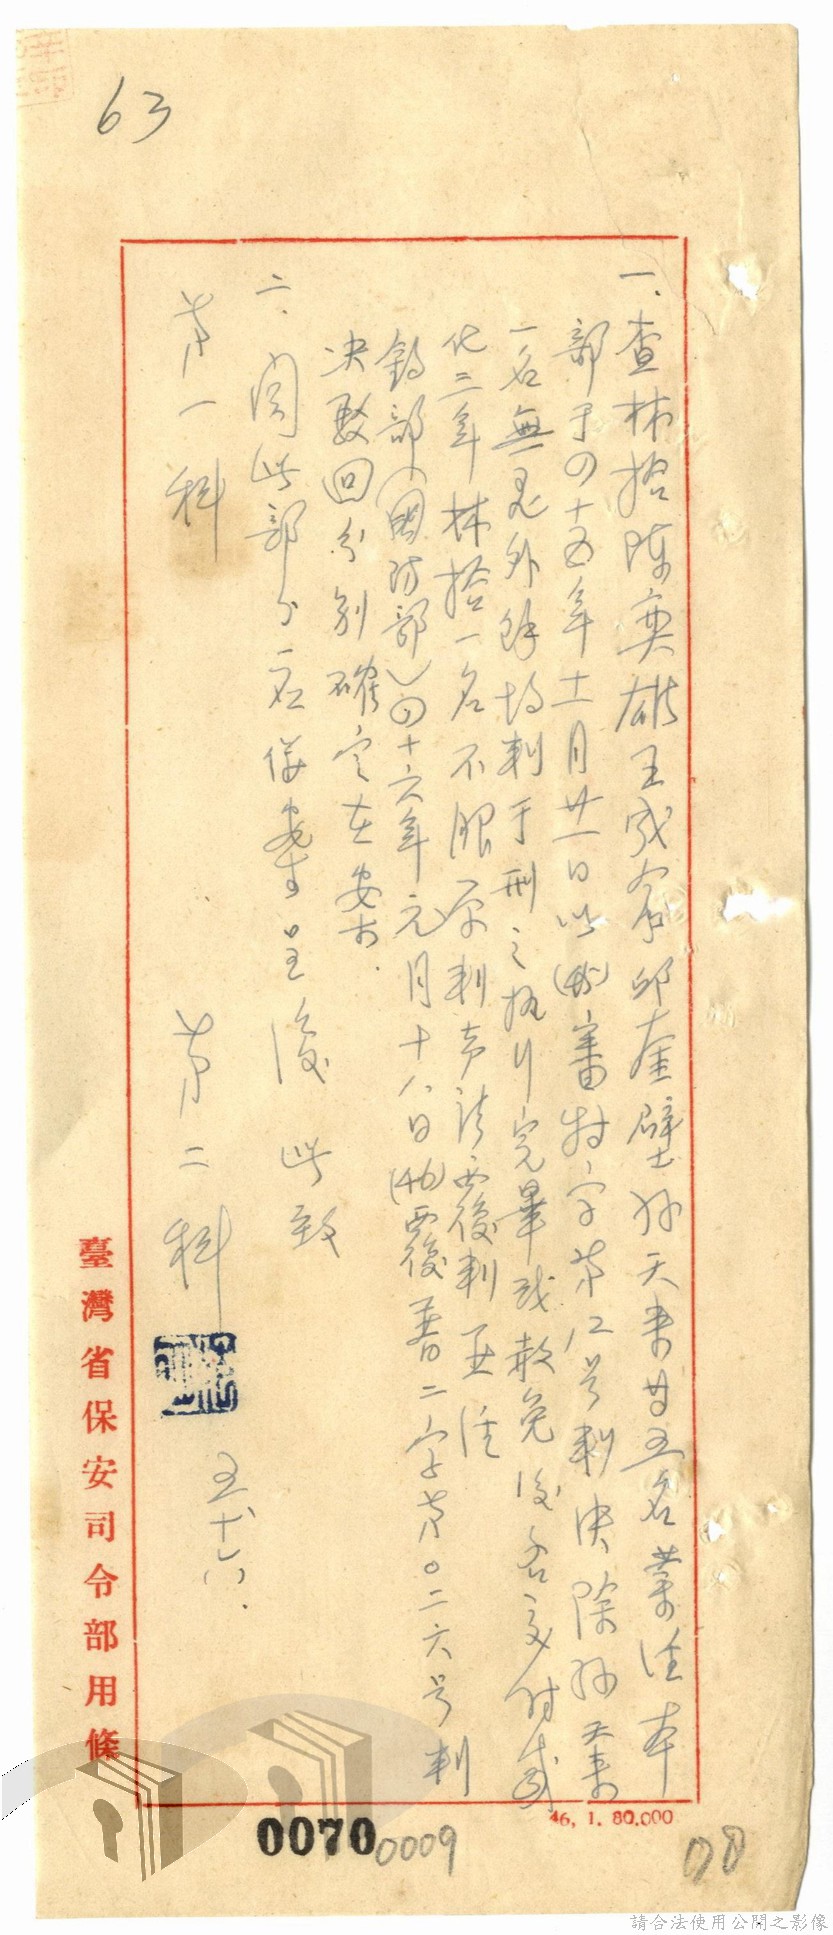 63
一、查林拾陳英雄王成育邱奎壁孫天來等五名業經本
部于四十五年十一月廿一日以(45)審特字第12号判決除孫天來
一名無罪外餘均判于刑之執行完畢或赦免後各交付感
化三年林拾一名不服原判声請覆判並經
鈞部(國防部)四十六年元月十八日(46)覆普二字第〇二六号判
決駁回分別確定在案.
二、関此部分 併 呈復 此致
第一科
第二科
五十六.
臺灣省保安司令部用條
46, 1. 80.000
0070
0009
請合法使用公開之影像